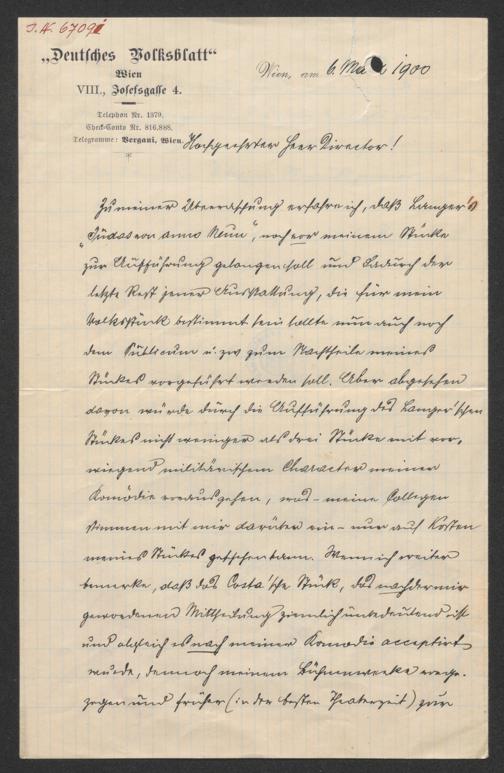 J. N. 67091
„Deutsches Volksblatt“
Wien
VIII., Josefsgasse 4.
Telephon Nr. 1379.
Check-Conto Nr. 816.888.
Telegramme: Bergani, Wien.
Wien, am 6. März 1900
Hochgeehrter Herr Director!
Zu meiner Überraschung erfahre ich, daß Langer's
„Judas von anno Neun“, noch vor meinem Stücke
zur Aufführung gelangen soll und dadurch der
letzte Rest jener Ausstattung, die für mein
Volksstück bestimmt sein sollte nun auch noch
dem Publicum u. zw. zum Nachtheile meines
Stückes vorgeführt werden soll. Aber abgesehen
davon würde durch die Aufführung des Langer'schen
Stückes nicht weniger als drei Stücke mit vor-
wiegend militärischem Character meiner
Komödie vorausgehen, was – meine Collegen
stimmen mit mir darüber ein – nur auf Kosten
meines Stückes geschehen kann. Wenn ich weiter
bemerke, daß das Costa'sche Stück, das nach der mir
gewordenen Mittheilung ziemlich unbedeutend ist
und obgleich es nach meiner Komödie acceptirt
wurde, dennoch meinem Bühnenwerke vorge-
zogen und früher (in der besten Theaterzeit) zur